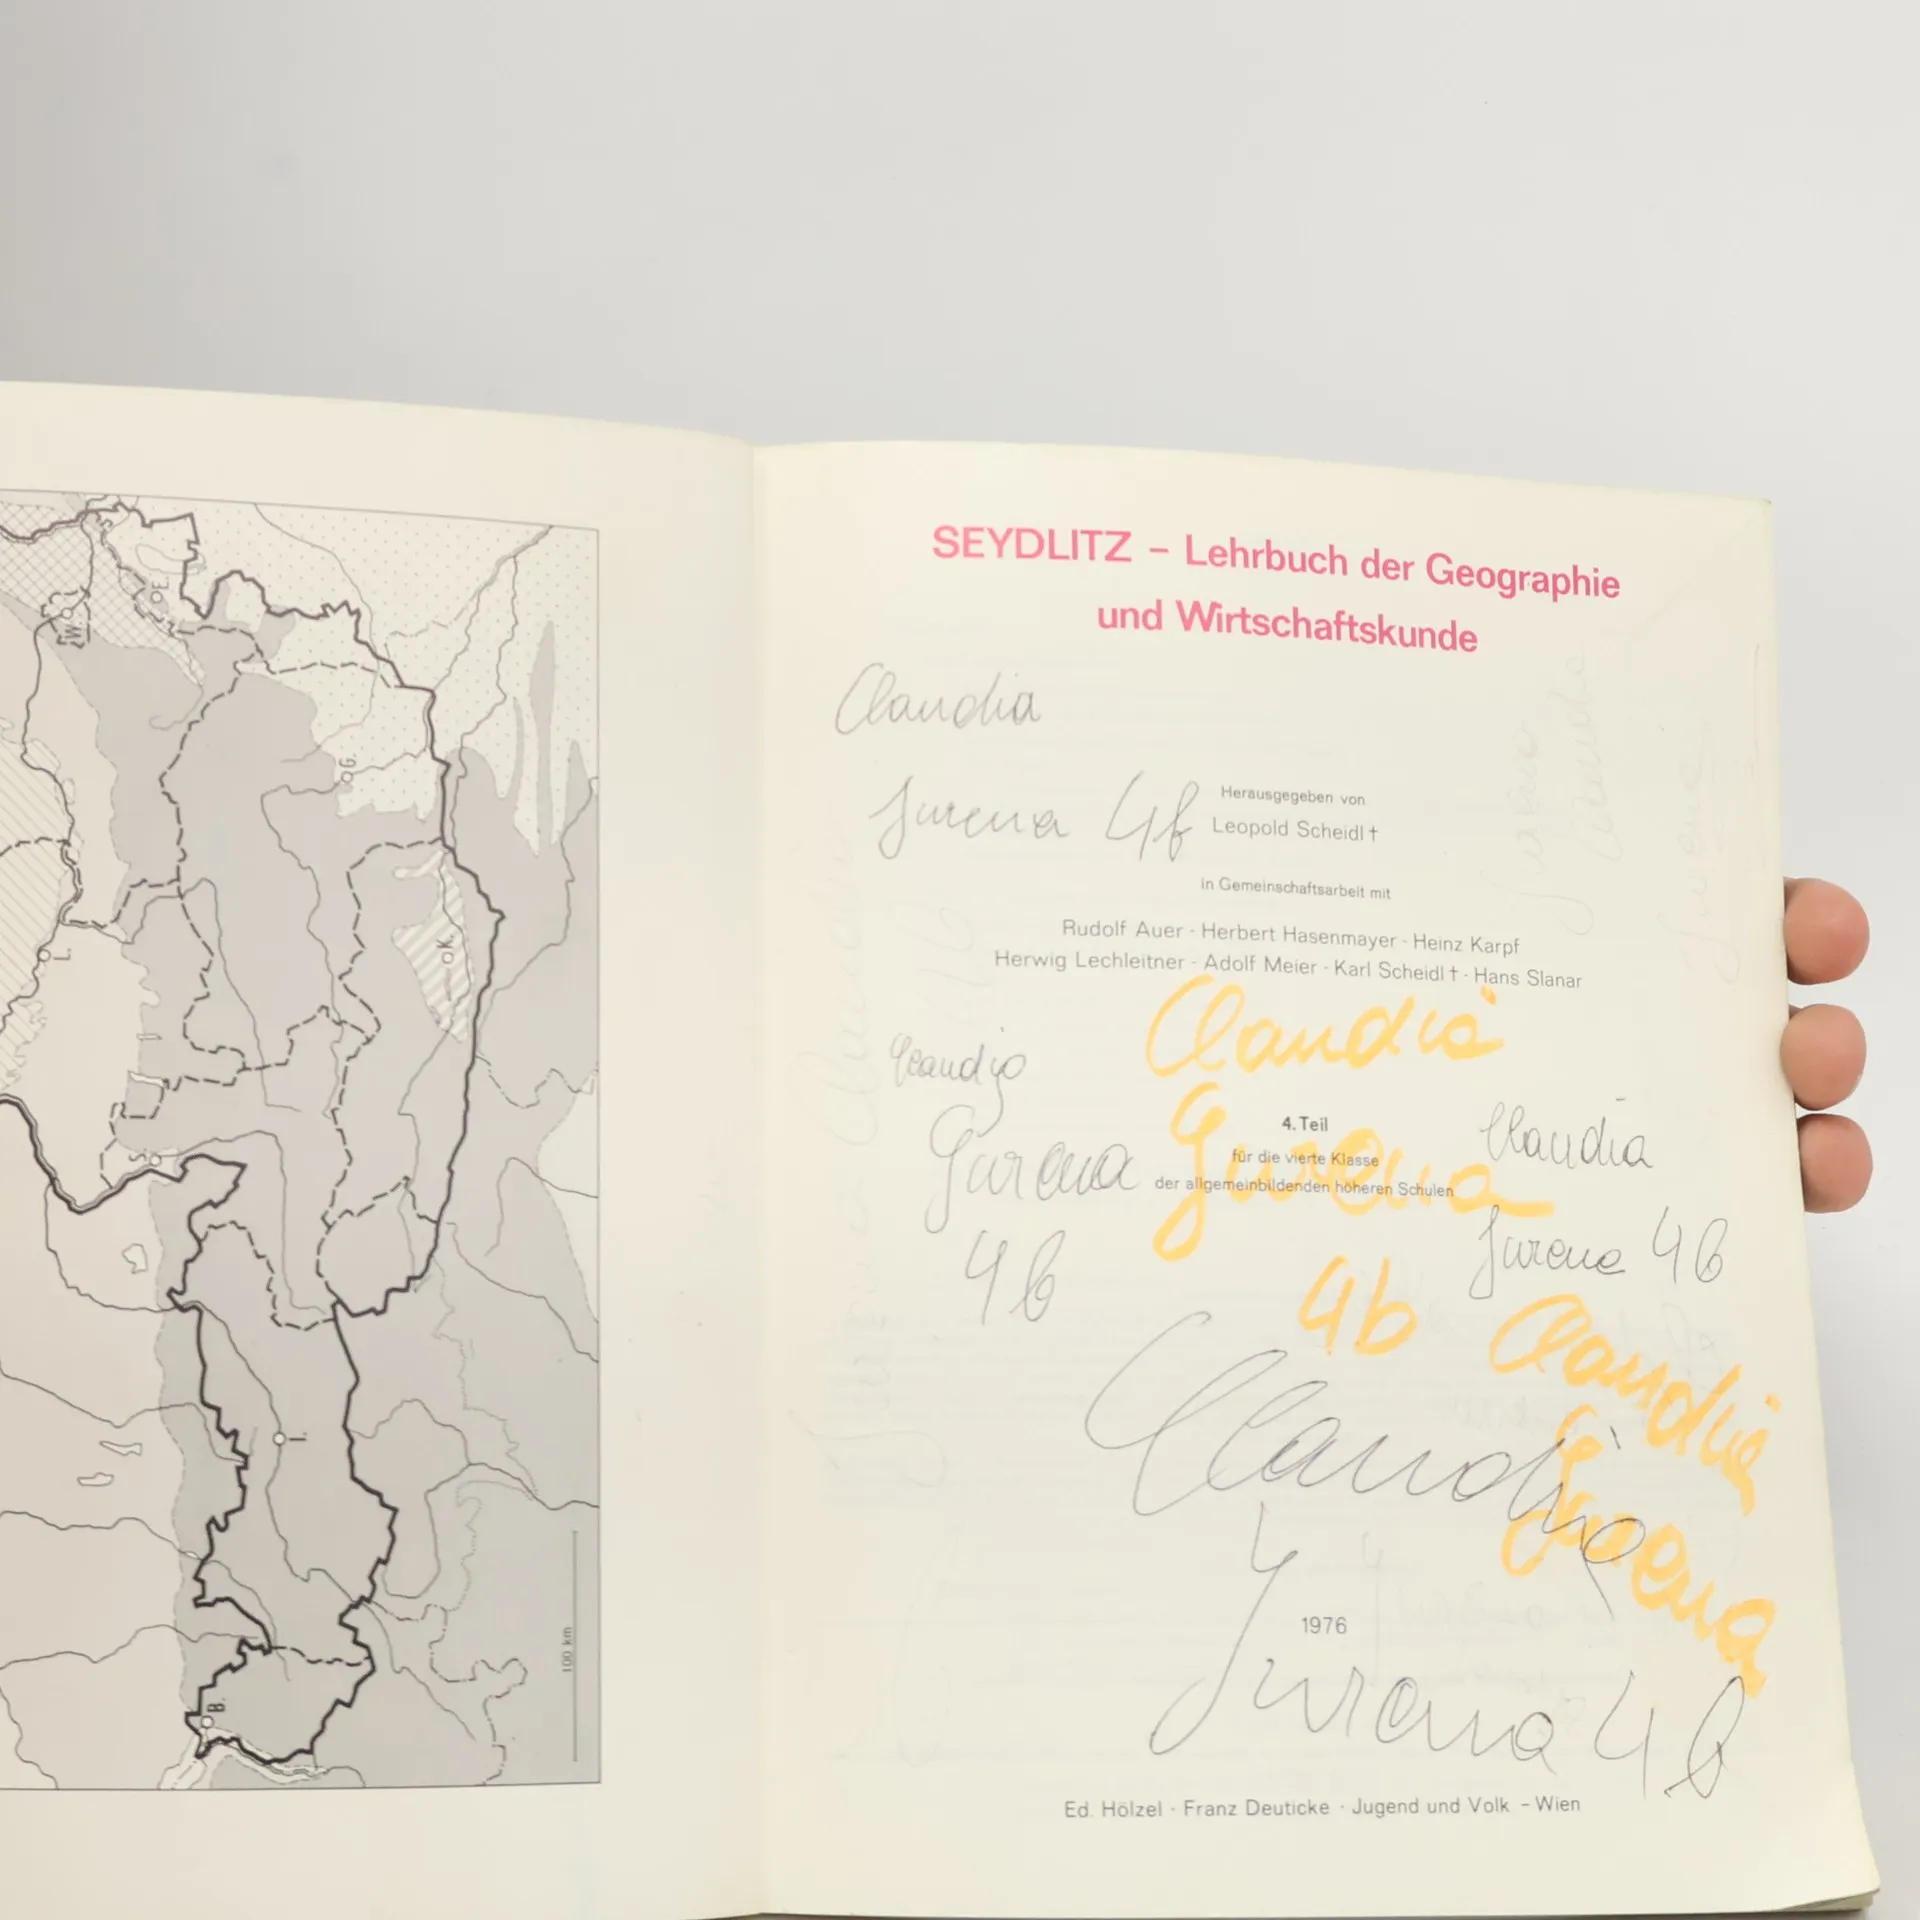 W.
E.
G.
L.
K.
S.
I.
B.
100 km
SEYDLITZ – Lehrbuch der Geographie
und Wirtschaftskunde
Claudia
Jurena 4b
Herausgegeben von
Leopold Scheidl †
in Gemeinschaftsarbeit mit
Rudolf Auer · Herbert Hasenmayer · Heinz Karpf
Herwig Lechleitner · Adolf Meier · Karl Scheidl † · Hans Slanar
Claudia
Jurena
4b
Claudia
Jurena
4b
4. Teil
für die vierte Klasse
der allgemeinbildenden höheren Schulen
Claudia
Jurena 4b
Claudia
Jurena
Claudia
1976
Jurena 4b
Ed. Hölzel · Franz Deuticke · Jugend und Volk – Wien